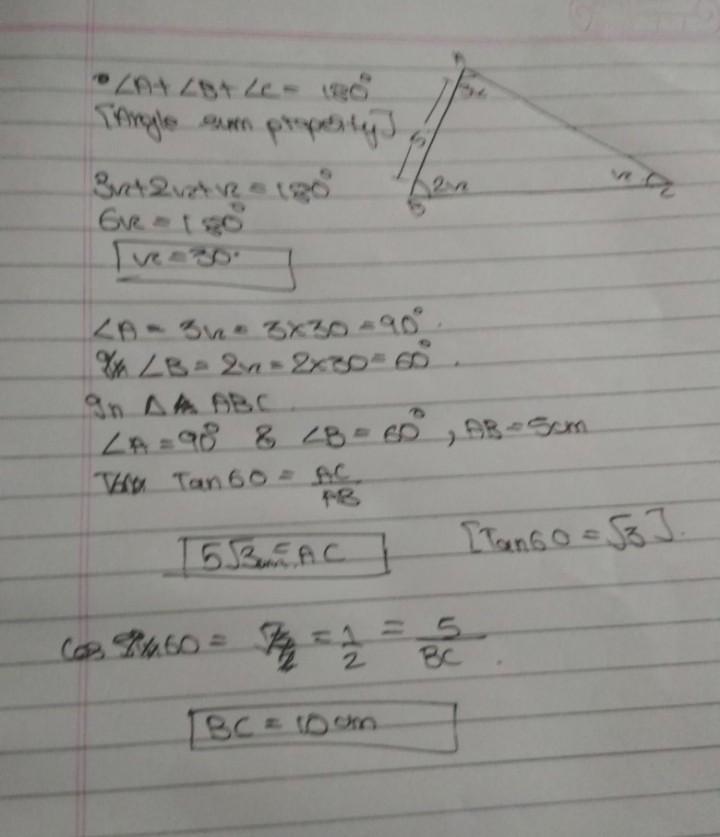 ∠A + ∠B + ∠C = 180°
[Angle sum property]
3x + 2x + x = 180°
6x = 180°
x = 30°
A
3x
5
2x
B
x
C
∠A = 3x = 3×30 = 90°.
∠B = 2x = 2×30 = 60°.
In Δ ABC
∠A = 90° & ∠B = 60°, AB = 5cm
Tan60 = AC/AB
5√3cm = AC
[Tan60 = √3].
Cos 60 = 1/2 = 5/BC.
BC = 10cm